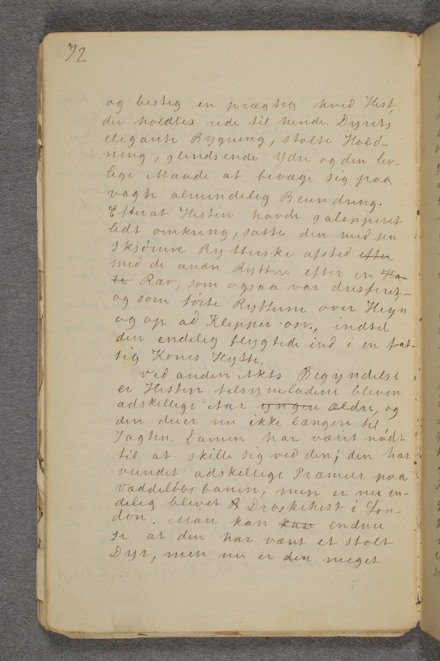 72
og besteg en prægtig hvid Hest,
der holdtes rede til hende. Dyrets
elegante Bygning, stolte Hold-
ning, glindsende Ydre og den let-
lige Maade at bevæge sig paa
vagte almindelig Beundring.
Efterat Hesten havde galopperet
lidt omkring, satte den med sin
skjønne Rytterske afsted efter
med de andre Ryttere efter en Ka-
te Ræv, som ogsaa var dresseret,
og som førte Rytterne over Hegn
og op ad Klipper osv., indtil
den endelig flygtede ind i en fat-
tig Kones Hytte.
Ved anden Akts Begyndelse
er Hesten tilsyneladene bleven
adskillige Aar yngre ældre, og
den duer nu ikke længere til
Jagten. Damen har været nødt
til at skille sig ved den; den har
vundet adskillige Præmier paa
Væddeløbsbanen, men er nu en-
delig blevet Droskehest i Lon-
don. Man kan kan endnu
se at den har været et stolt
Dyr, men nu er den meget